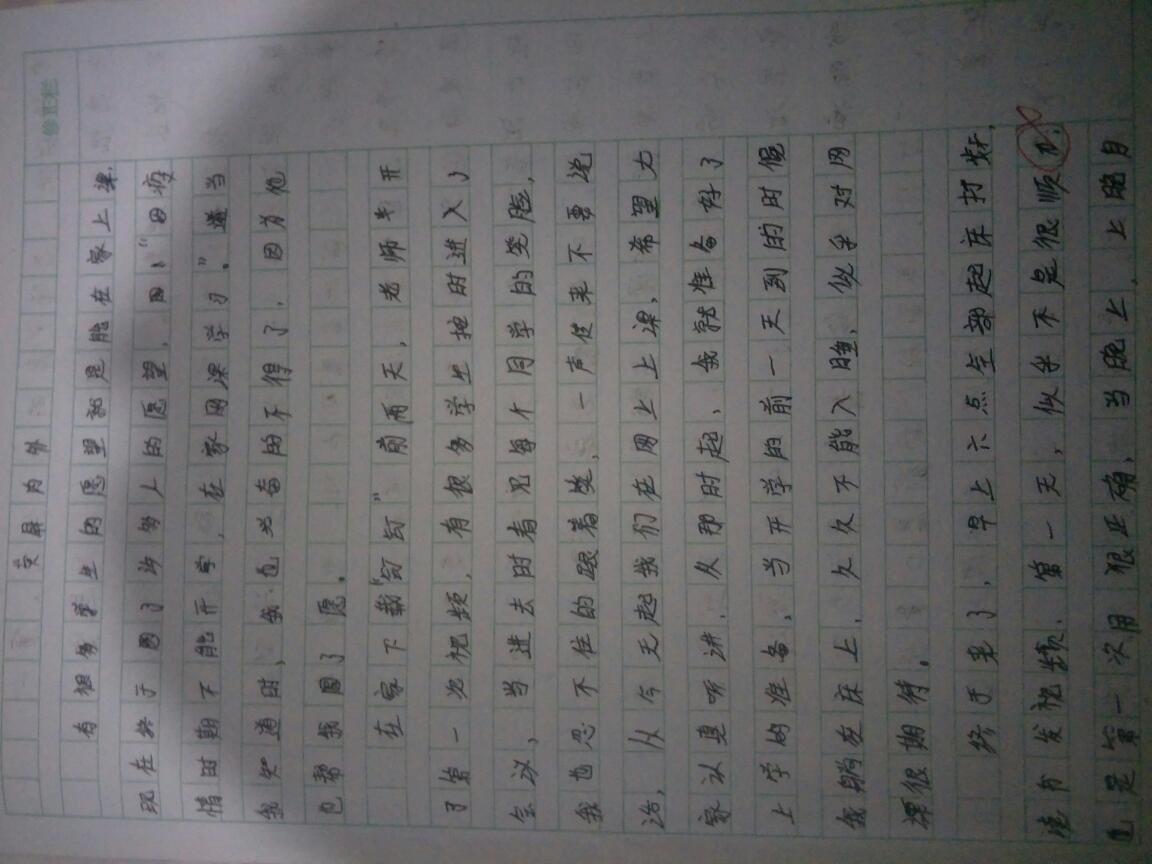 变屏为务
有很多学生的愿望就是能在家上课,
现在终于圆了许多人的愿望,因为"因疫
情时期不能开学,在家网课学习。"当
我知道时,我也兴奋的不得了,因为他
也帮我圆了愿。
在家下载"钉钉"前两天,老师率开
了第一次视频,有很多学生抱时进入了
会议,当进去时看见每个同学的笑脸,
我也忍不住的跟着笑,一声使来不要说
话,从今天起我们在网上上课,希望大
家认真听讲,久那时起,我就准备好了
上学的准备,当开学的前一天到的时候
我躺在床上,久久不能入睡,似乎对网
课很期待。
终于来了,早上六点全部起床打卡,
读书发视频,第一天,似乎不是很顺利,
这是第一次用 很正确,当晚上,上晚自
修正栏